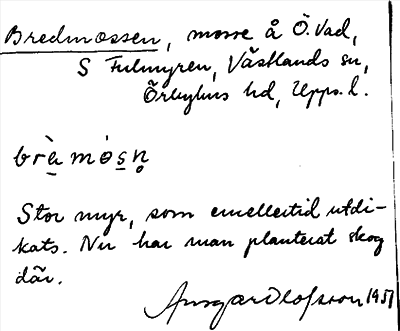 Bredmossen, mosse å Ö. Vad,
S Fulmyren, Västlands sn,
Örbyhus hd, Upps. l.
brὲ̀a mósn̥
Stor myr, som emellertid utdi-
kats. Nu har man planterat skog
där.
Ansgar Olofsson 1951